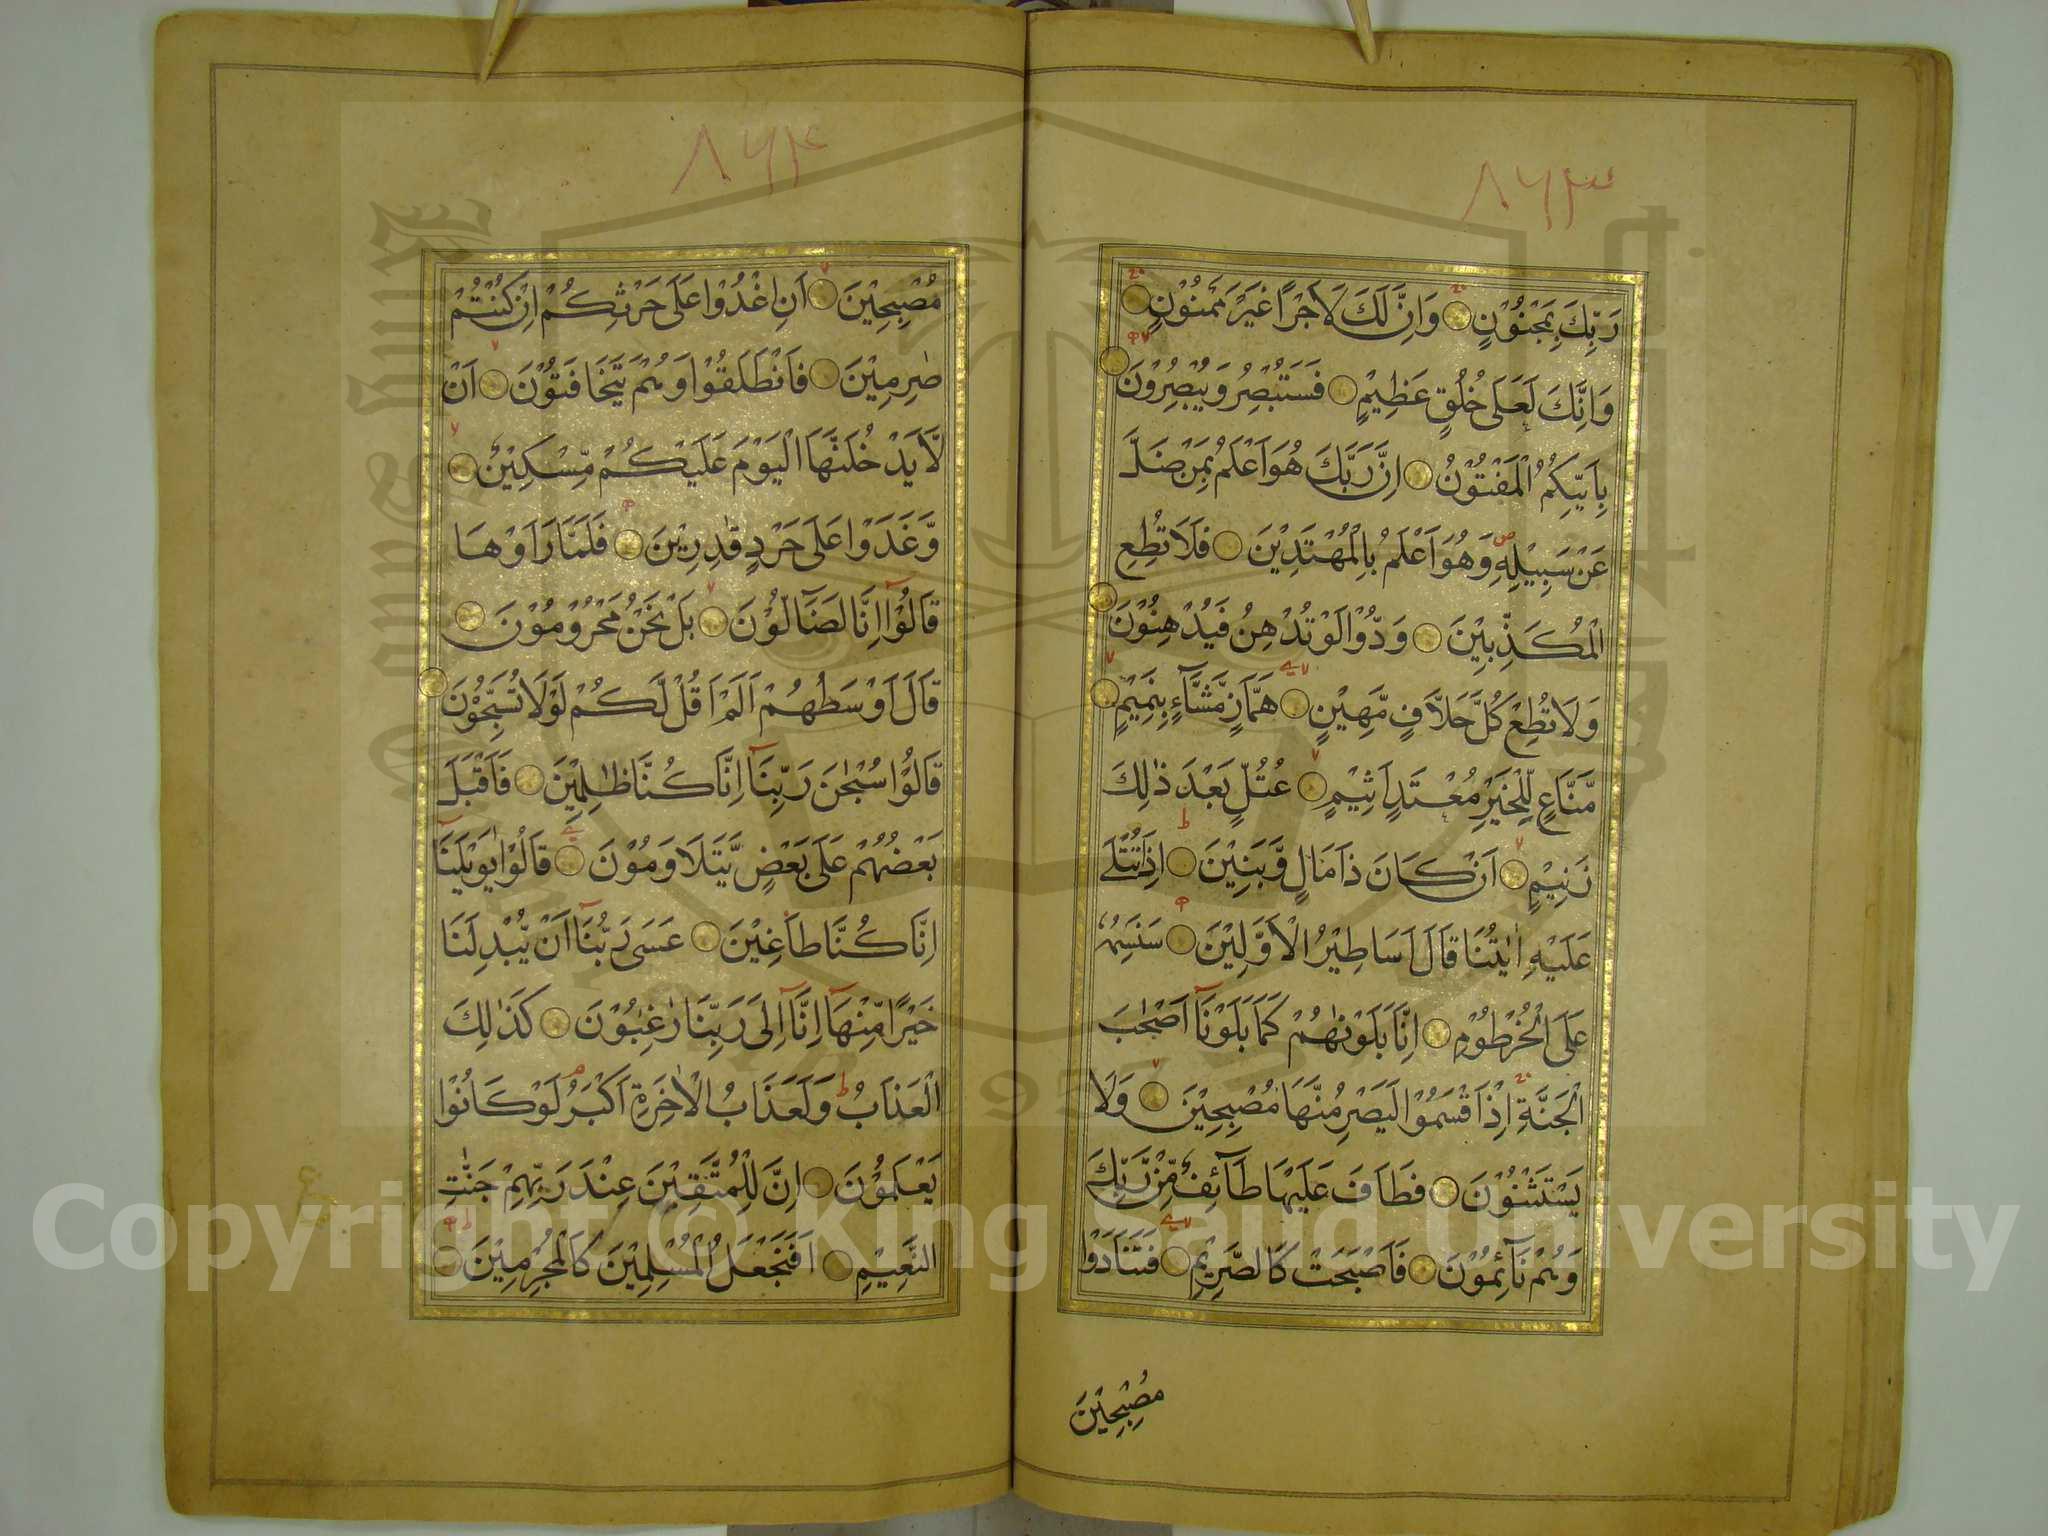 ۸۶۳
رَبِّكَ بِمَجْنُوْنٍ وَاِنَّ لَكَ لَاَجْرًا غَيْرَ مَمْنُوْنٍ
وَاِنَّكَ لَعَلٰى خُلُقٍ عَظِيْمٍ فَسَتُبْصِرُ وَيُبْصِرُوْنَ
بِاَيِّكُمُ الْمَفْتُوْنُ اِنَّ رَبَّكَ هُوَ اَعْلَمُ بِمَنْ ضَلَّ
عَنْ سَبِيْلِهٖ وَهُوَ اَعْلَمُ بِالْمُهْتَدِيْنَ فَلَا تُطِعِ
الْمُكَذِّبِيْنَ وَدُّوْا لَوْ تُدْهِنُ فَيُدْهِنُوْنَ
وَلَا تُطِعْ كُلَّ حَلَّافٍ مَّهِيْنٍ هَمَّازٍ مَّشَّآءٍ بِنَمِيْمٍ
مَّنَّاعٍ لِّلْخَيْرِ مُعْتَدٍ اَثِيْمٍ عُتُلٍّ بَعْدَ ذٰلِكَ
زَنِيْمٍ اَنْ كَانَ ذَا مَالٍ وَّبَنِيْنَ اِذَا تُتْلٰى
عَلَيْهِ اٰيٰتُنَا قَالَ اَسَاطِيْرُ الْاَوَّلِيْنَ سَنَسِمُهٗ
عَلَى الْخُرْطُوْمِ اِنَّا بَلَوْنٰهُمْ كَمَا بَلَوْنَآ اَصْحٰبَ
الْجَنَّةِ اِذْ اَقْسَمُوْا لَيَصْرِمُنَّهَا مُصْبِحِيْنَ وَلَا
يَسْتَثْنُوْنَ فَطَافَ عَلَيْهَا طَآئِفٌ مِّنْ رَّبِّكَ
وَهُمْ نَآئِمُوْنَ فَاَصْبَحَتْ كَالصَّرِيْمِ فَتَنَادَوْا
مُصْبِحِيْنَ
۸۶۴
مُصْبِحِيْنَ اَنِ اغْدُوْا عَلٰى حَرْثِكُمْ اِنْ كُنْتُمْ
صٰرِمِيْنَ فَانْطَلَقُوْا وَهُمْ يَتَخَافَتُوْنَ اَنْ
لَّا يَدْخُلَنَّهَا الْيَوْمَ عَلَيْكُمْ مِّسْكِيْنٌ
وَّغَدَوْا عَلٰى حَرْدٍ قٰدِرِيْنَ فَلَمَّا رَاَوْهَا
قَالُوْٓا اِنَّا لَضَآلُّوْنَ بَلْ نَحْنُ مَحْرُوْمُوْنَ
قَالَ اَوْسَطُهُمْ اَلَمْ اَقُلْ لَّكُمْ لَوْلَا تُسَبِّحُوْنَ
قَالُوْا سُبْحٰنَ رَبِّنَآ اِنَّا كُنَّا ظٰلِمِيْنَ فَاَقْبَلَ
بَعْضُهُمْ عَلٰى بَعْضٍ يَّتَلَاوَمُوْنَ قَالُوْا يٰوَيْلَنَآ
اِنَّا كُنَّا طَاغِيْنَ عَسٰى رَبُّنَآ اَنْ يُّبْدِلَنَا
خَيْرًا مِّنْهَآ اِنَّآ اِلٰى رَبِّنَا رٰغِبُوْنَ كَذٰلِكَ
الْعَذَابُ وَلَعَذَابُ الْاٰخِرَةِ اَكْبَرُ لَوْ كَانُوْا
يَعْلَمُوْنَ اِنَّ لِلْمُتَّقِيْنَ عِنْدَ رَبِّهِمْ جَنّٰتِ
النَّعِيْمِ اَفَنَجْعَلُ الْمُسْلِمِيْنَ كَالْمُجْرِمِيْنَ
Copyright © King Saud University